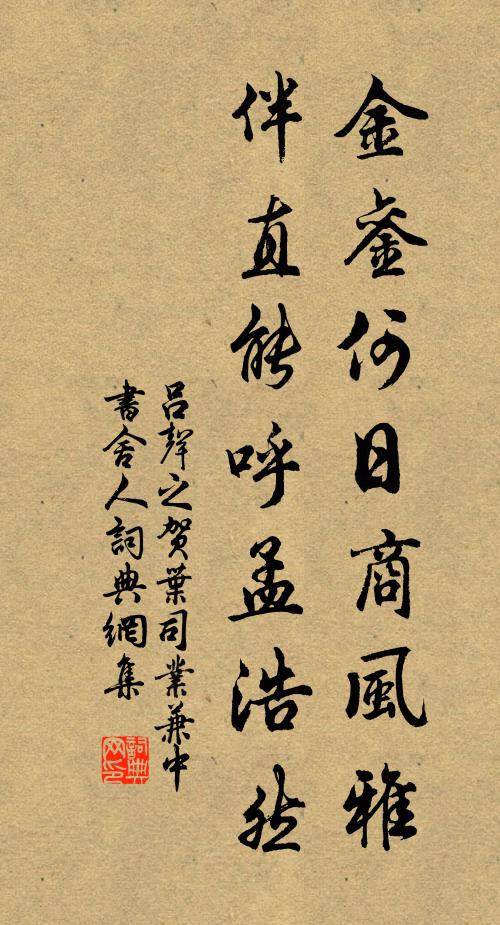 金銮何日商風雅
伴直能呼孟浩然
吕聲之賀葉司業兼中
書舍人詞典網集
詞典网印